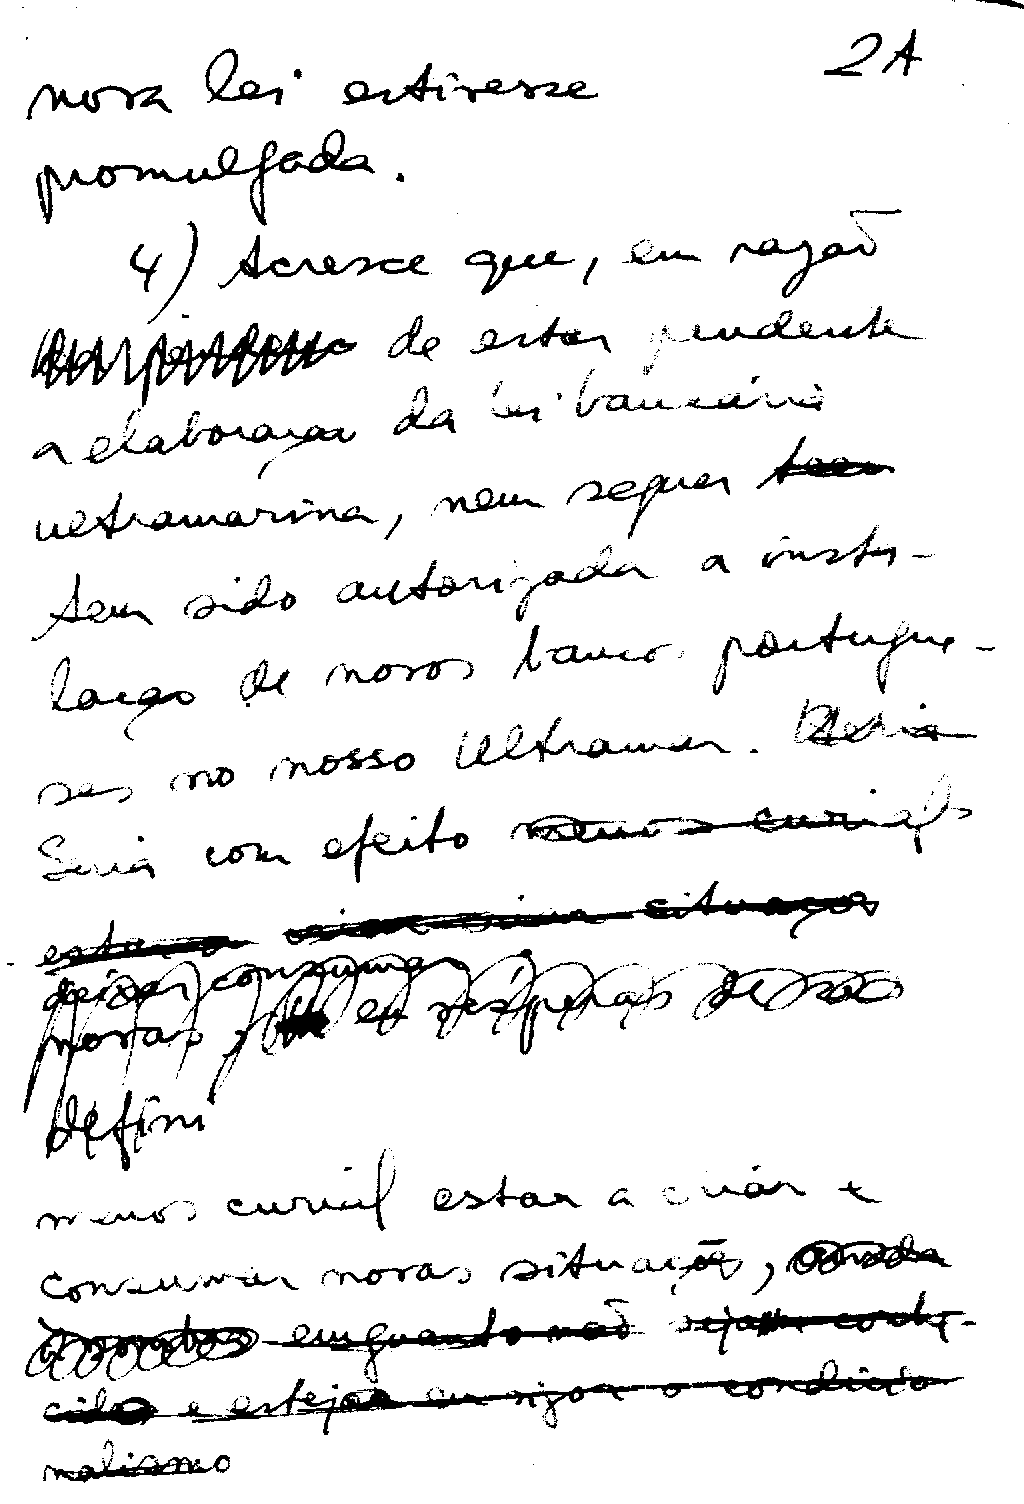 2A
nova lei estivesse
promulgada.
4) Acresce que, em razão
de estar pendente
a elaboração da lei bancária
ultramarina, nem sequer
tem sido autorizada a insta-
lação de novos bancos portugue-
ses no nosso Ultramar.
Seria com efeito menos curial
estar a situação
deixar consumar
novas
defini
menos curial estar a criar e
consumar novas situações, ainda
enquanto não seja
e esteja em vigor o condicio
nalismo